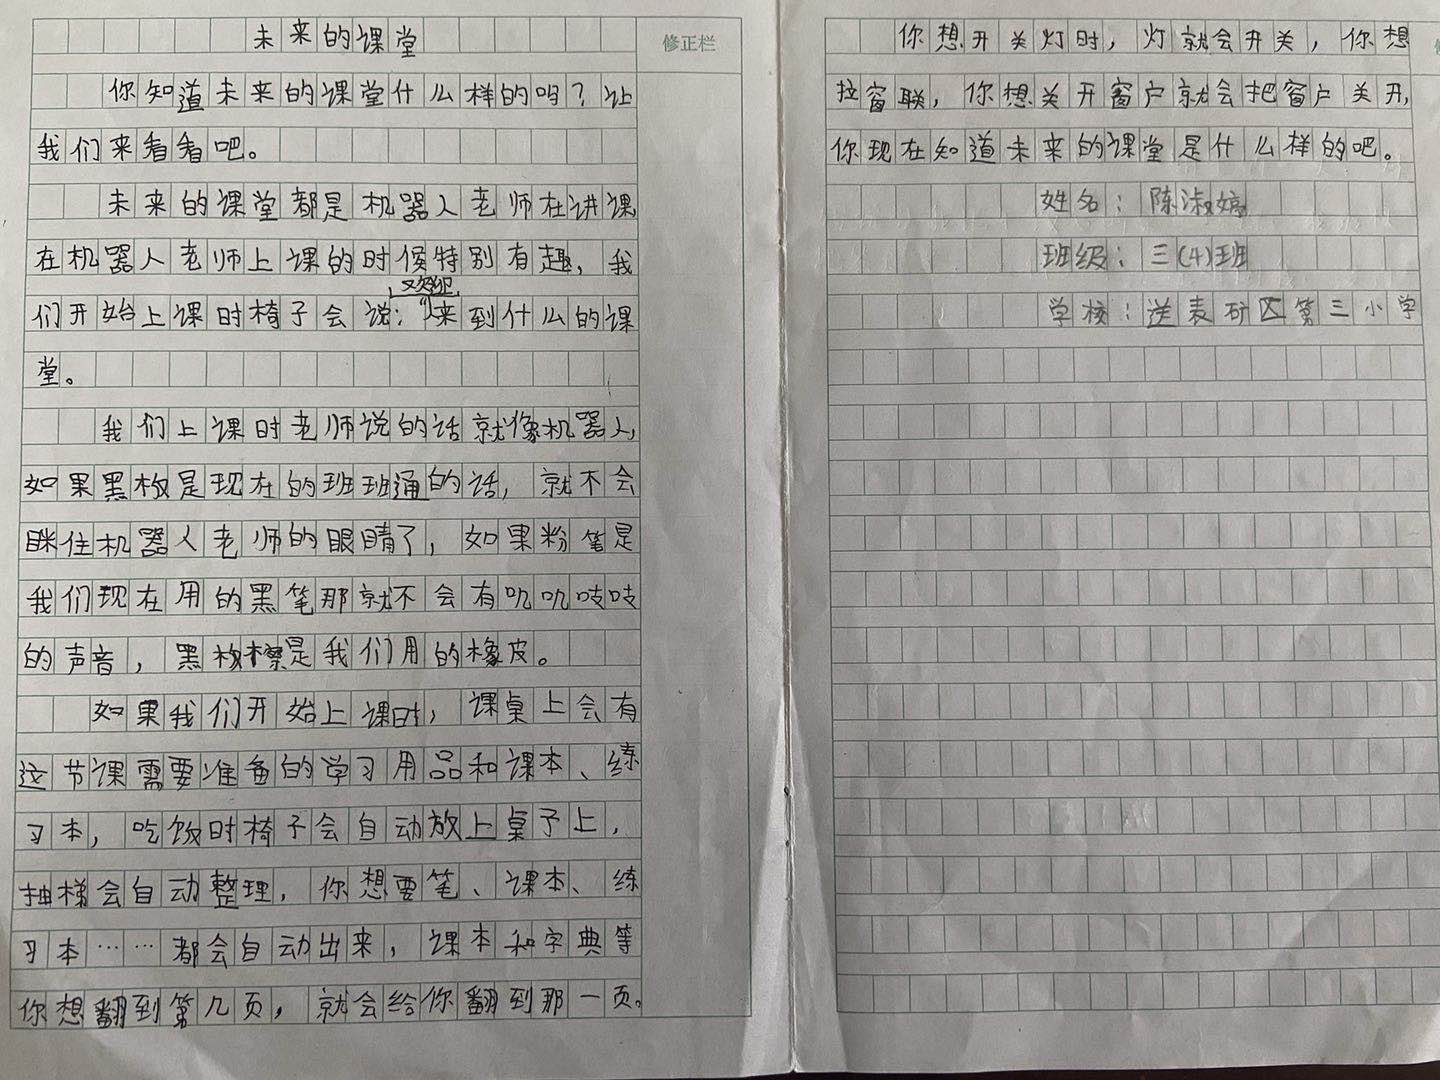 未来的课堂
修正栏
你知道未来的课堂什么样的吗？让
我们来看看吧。
未来的课堂都是机器人老师在讲课
在机器人老师上课的时候特别有趣，我
欢迎
们开始上课时椅子会说：“来到什么的课
堂。
我们上课时老师说的话就像机器人，
如果黑板是现在的班班通的话，就不会
眯住机器人老师的眼睛了，如果粉笔是
我们现在用的黑笔那就不会有叽叽吱吱
的声音，黑板擦是我们用的橡皮。
如果我们开始上课时，课桌上会有
这节课需要准备的学习用品和课本、练
习本，吃饭时椅子会自动放上桌子上，
抽梯会自动整理，你想要笔、课本、练
习本……都会自动出来，课本和字典等
你想翻到第几页，就会给你翻到那一页。
你想开关灯时，灯就会开关，你想
拉窗联，你想关开窗户就会把窗户关开，
你现在知道未来的课堂是什么样的吧。
姓名：陈淑婷
班级：三(4)班
学校：送表矿区第三小学